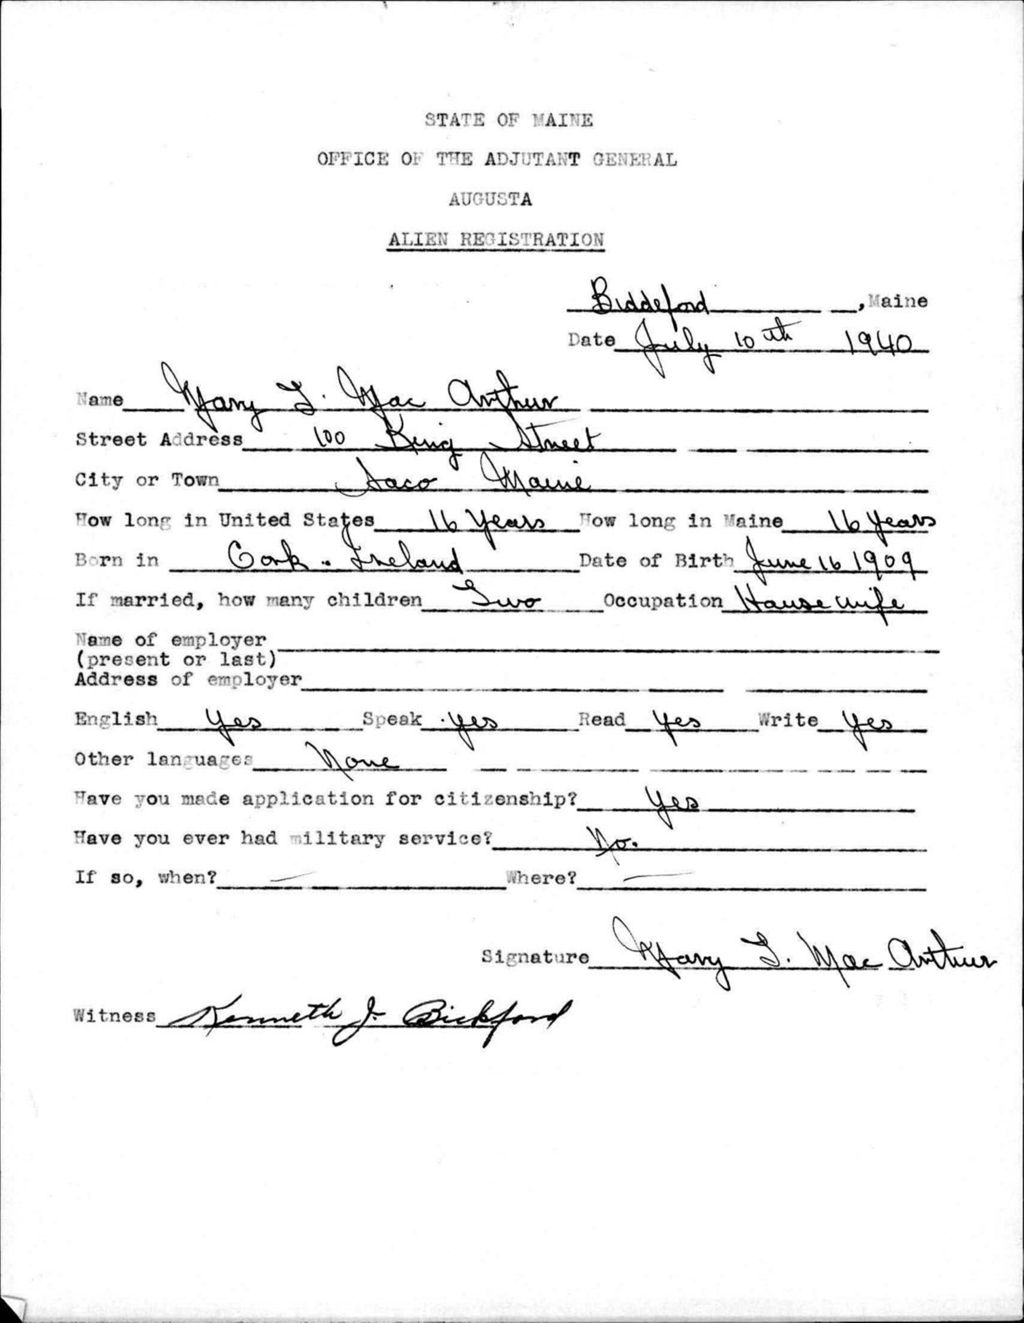 STATE OF MAINE
OFFICE OF THE ADJUTANT GENERAL
AUGUSTA
ALIEN REGISTRATION
Biddeford, Maine
Date July 10th 1940
Name Mary T. Mac Arthur
Street Address 100 King Street
City or Town Saco Maine
How long in United States 16 Years How long in Maine 16 Years
Born in Cork - Ireland Date of Birth June 16 1909
If married, how many children Two Occupation Housewife
Name of employer
(present or last)
Address of employer
English Yes Speak yes Read yes Write yes
Other languages None
Have you made application for citizenship? Yes
Have you ever had military service? No.
If so, when? — Where? —
Signature Mary T. Mac Arthur
Witness Kenneth J. Bickford